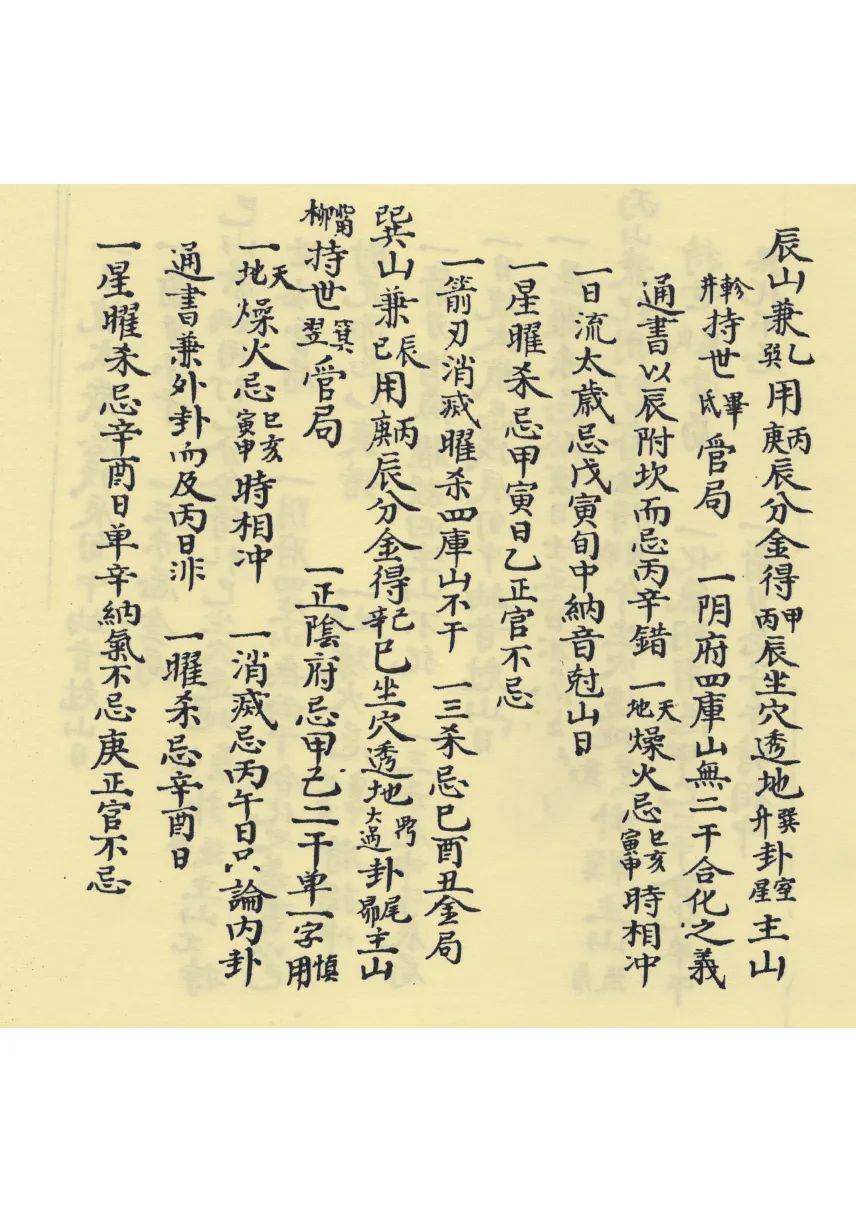 辰山兼乙巽用丙庚辰分金得甲丙辰坐穴透地巽升卦室星主山
軫井持世畢氐管局 一阴府四庫山無二干合化之義
通書以辰附坎而忌丙辛錯 一天地燥火忌巳亥寅申時相冲
一日流太歲忌戊寅旬中納音尅山日
一星曜杀忌甲寅日乙正官不忌
一箭刃消滅曜杀四庫山不干 一三杀忌巳酉丑金局
巽山兼辰巳用丙庚辰分金得己辛巳坐穴透地大過卦尾昴主山
觜柳持世箕翌管局 一正陰府忌甲己二干单一字慎用
一天地燥火忌巳亥寅申時相冲 一消滅忌丙午日只論内卦
通書兼外卦而及丙日非 一曜杀忌辛酉日
一星曜杀忌辛酉日单辛納氣不忌庚正官不忌